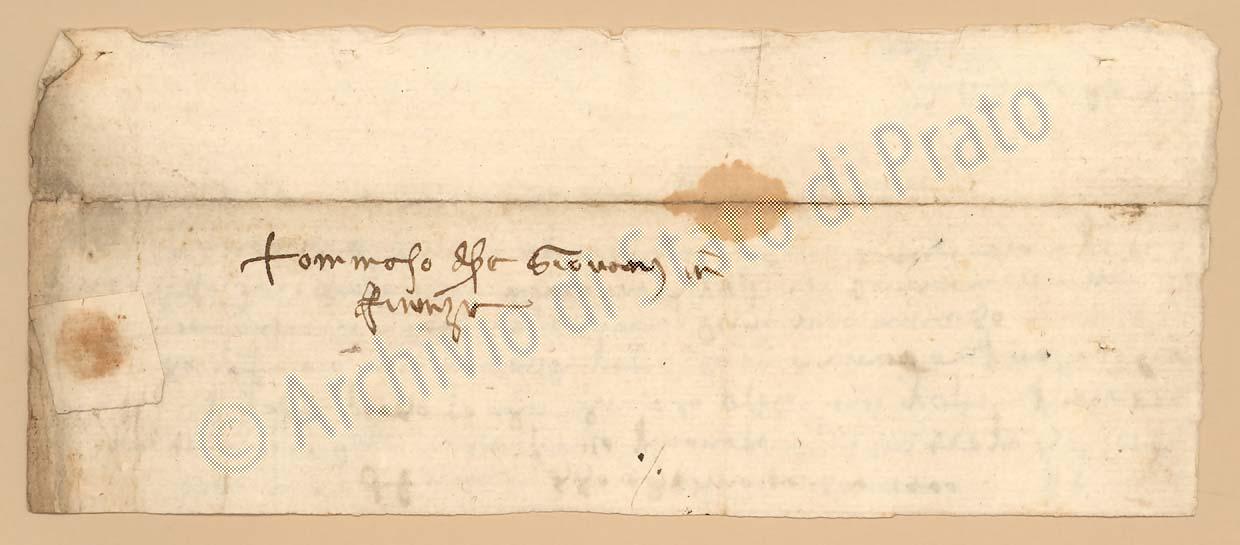 Tommaso di ser Giovanni in
Firenze
© Archivio di Stato di Prato